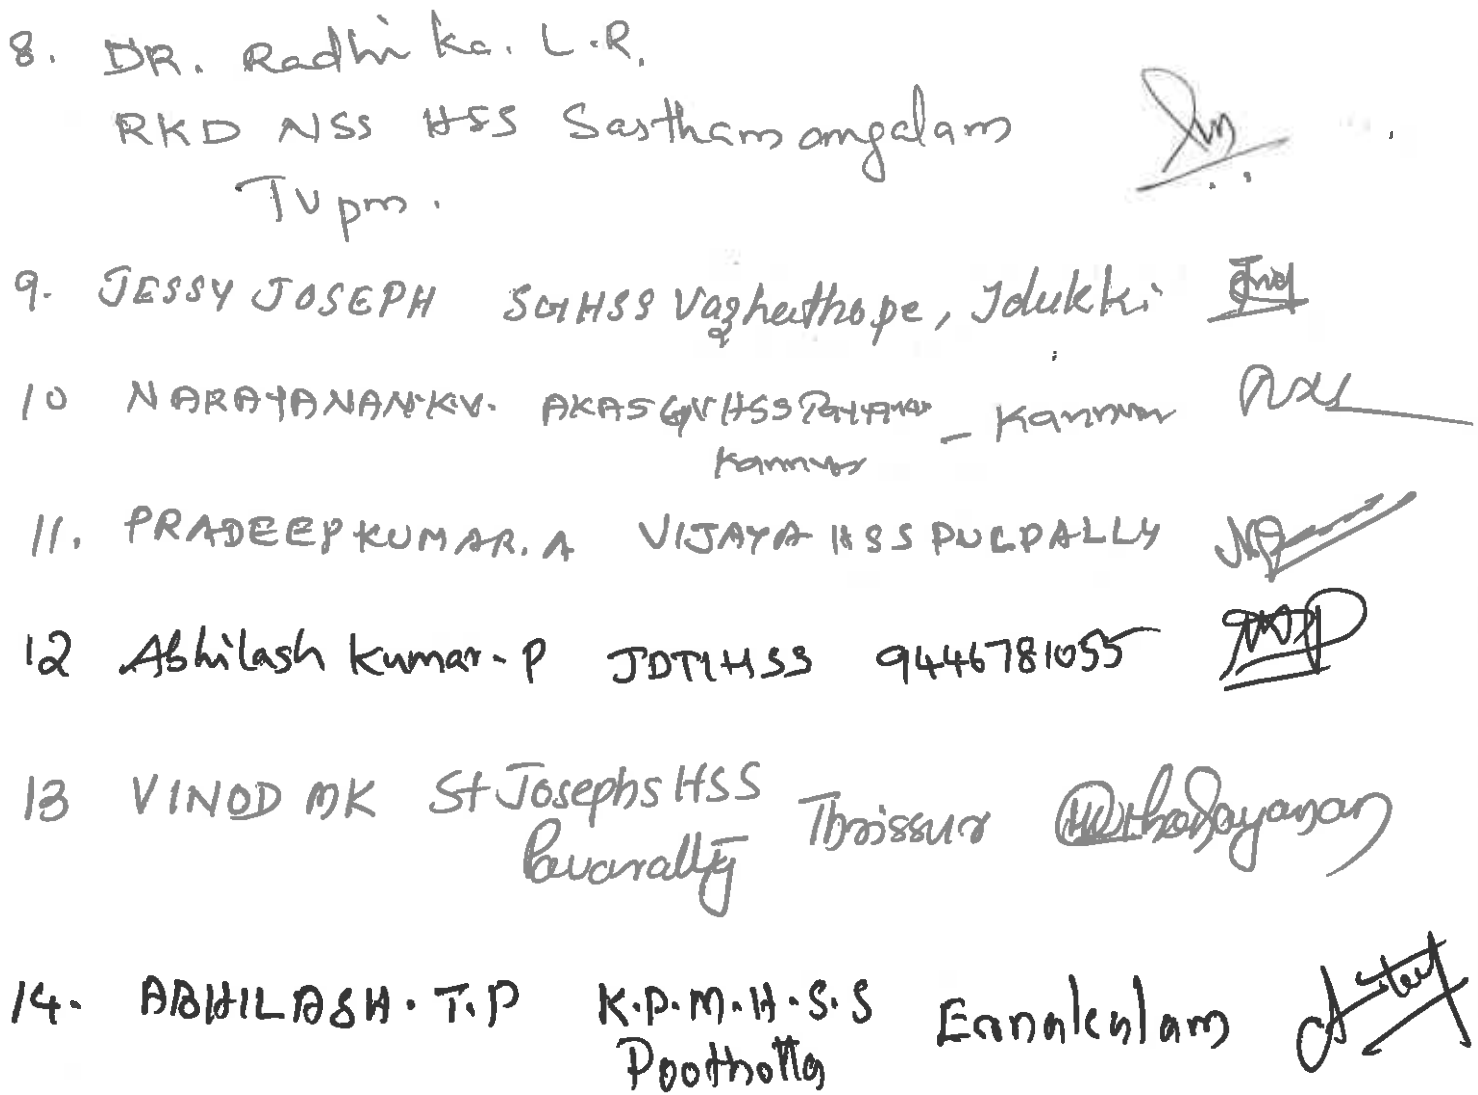 8. DR. Radhika. L.R.
RKD NSS HSS Sasthamangalam
Tvpm.
9. JESSY JOSEPH SGHSS Vazhathope, Idukki
10 NARAYANAN.K.V. AKASGVHSS - Kannur
Kannur
11. PRADEEPKUMAR. A VIJAYA HSS PULPALLY
12 Abhilash Kumar. P JDTIHSS 9446781055
13 VINOD MK St Josephs HSS Thrissur
Pavaratty
14. ABHILASH. T.P K.P.M.H.S.S Ernakulam
Poothotta